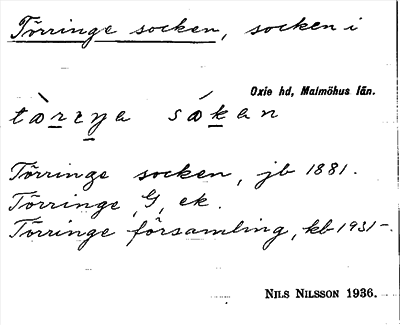 Törringe socken, socken i
Oxie hd, Malmöhus län.
tàrɪŋa sákan
Törringe socken, jb 1881.
Törringe, G, ek.
Törringe församling, kb 1931-.
NILS NILSSON 1936.